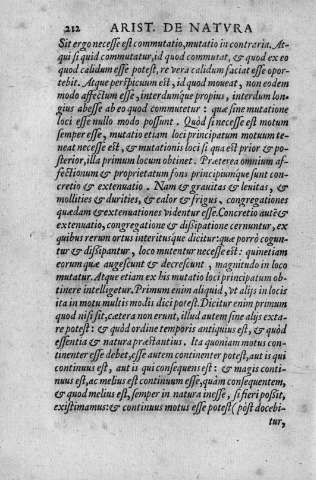 212 ARIST. DE NATVRA
Sit ergo necesse est commutatio, mutatio in contraria. At-
qui si quid commutatur, id quod commutat, & quod ex eo
quod calidum esse potest, re vera calidum faciat esse opor-
tebit. Atque perspicuum est, id quod moueat, non eodem
modo affectum esse, interdumque propius, interdum lon-
gius abesse ab eo quod commutetur: quæ sine mutatione
loci esse nullo modo possunt. Quòd si necesse est motum
semper esse, mutatio etiam loci principatum motuum te-
neat necesse est, & mutationis loci si qua est prior & po-
sterior, illa primum locum obtinet. Præterea omnium af-
fectionum & proprietatum fons principiumque sunt con-
cretio & extenuatio. Nam & grauitas & leuitas, &
mollities & durities, & calor & frigus, congregationes
quædam & extenuationes videntur esse. Concretio autē &
extenuatio, congregatione & dissipatione cernuntur, ex
quibus rerum ortus interitusque dicitur: quæ porrò cogun-
tur & dissipantur, loco mutentur necesse est: quinetiam
eorum quæ augescunt & decrescunt, magnitudo in loco
mutatur. Atque etiam ex his mutatio loci principatum ob-
tinere intelligetur. Primum enim aliquid, vt alijs in locis
ita in motu multis modis dici potest. Dicitur enim primum
quod nisi sit, cætera non erunt, illud autem sine alijs exta-
re potest: & quòd ordine temporis antiquius est, & quòd
essentia & natura præstantius. Ita quoniam motus con-
tinenter esse debet, esse autem continenter potest, aut is qui
continuus est, aut is qui consequens est: & magis conti-
nuus est, ac melius est continuum esse, quàm consequentem,
& quod melius est, semper in natura inesse, si fieri possit,
existimamus: & continuus motus esse potest (pòst docebi-
tur,